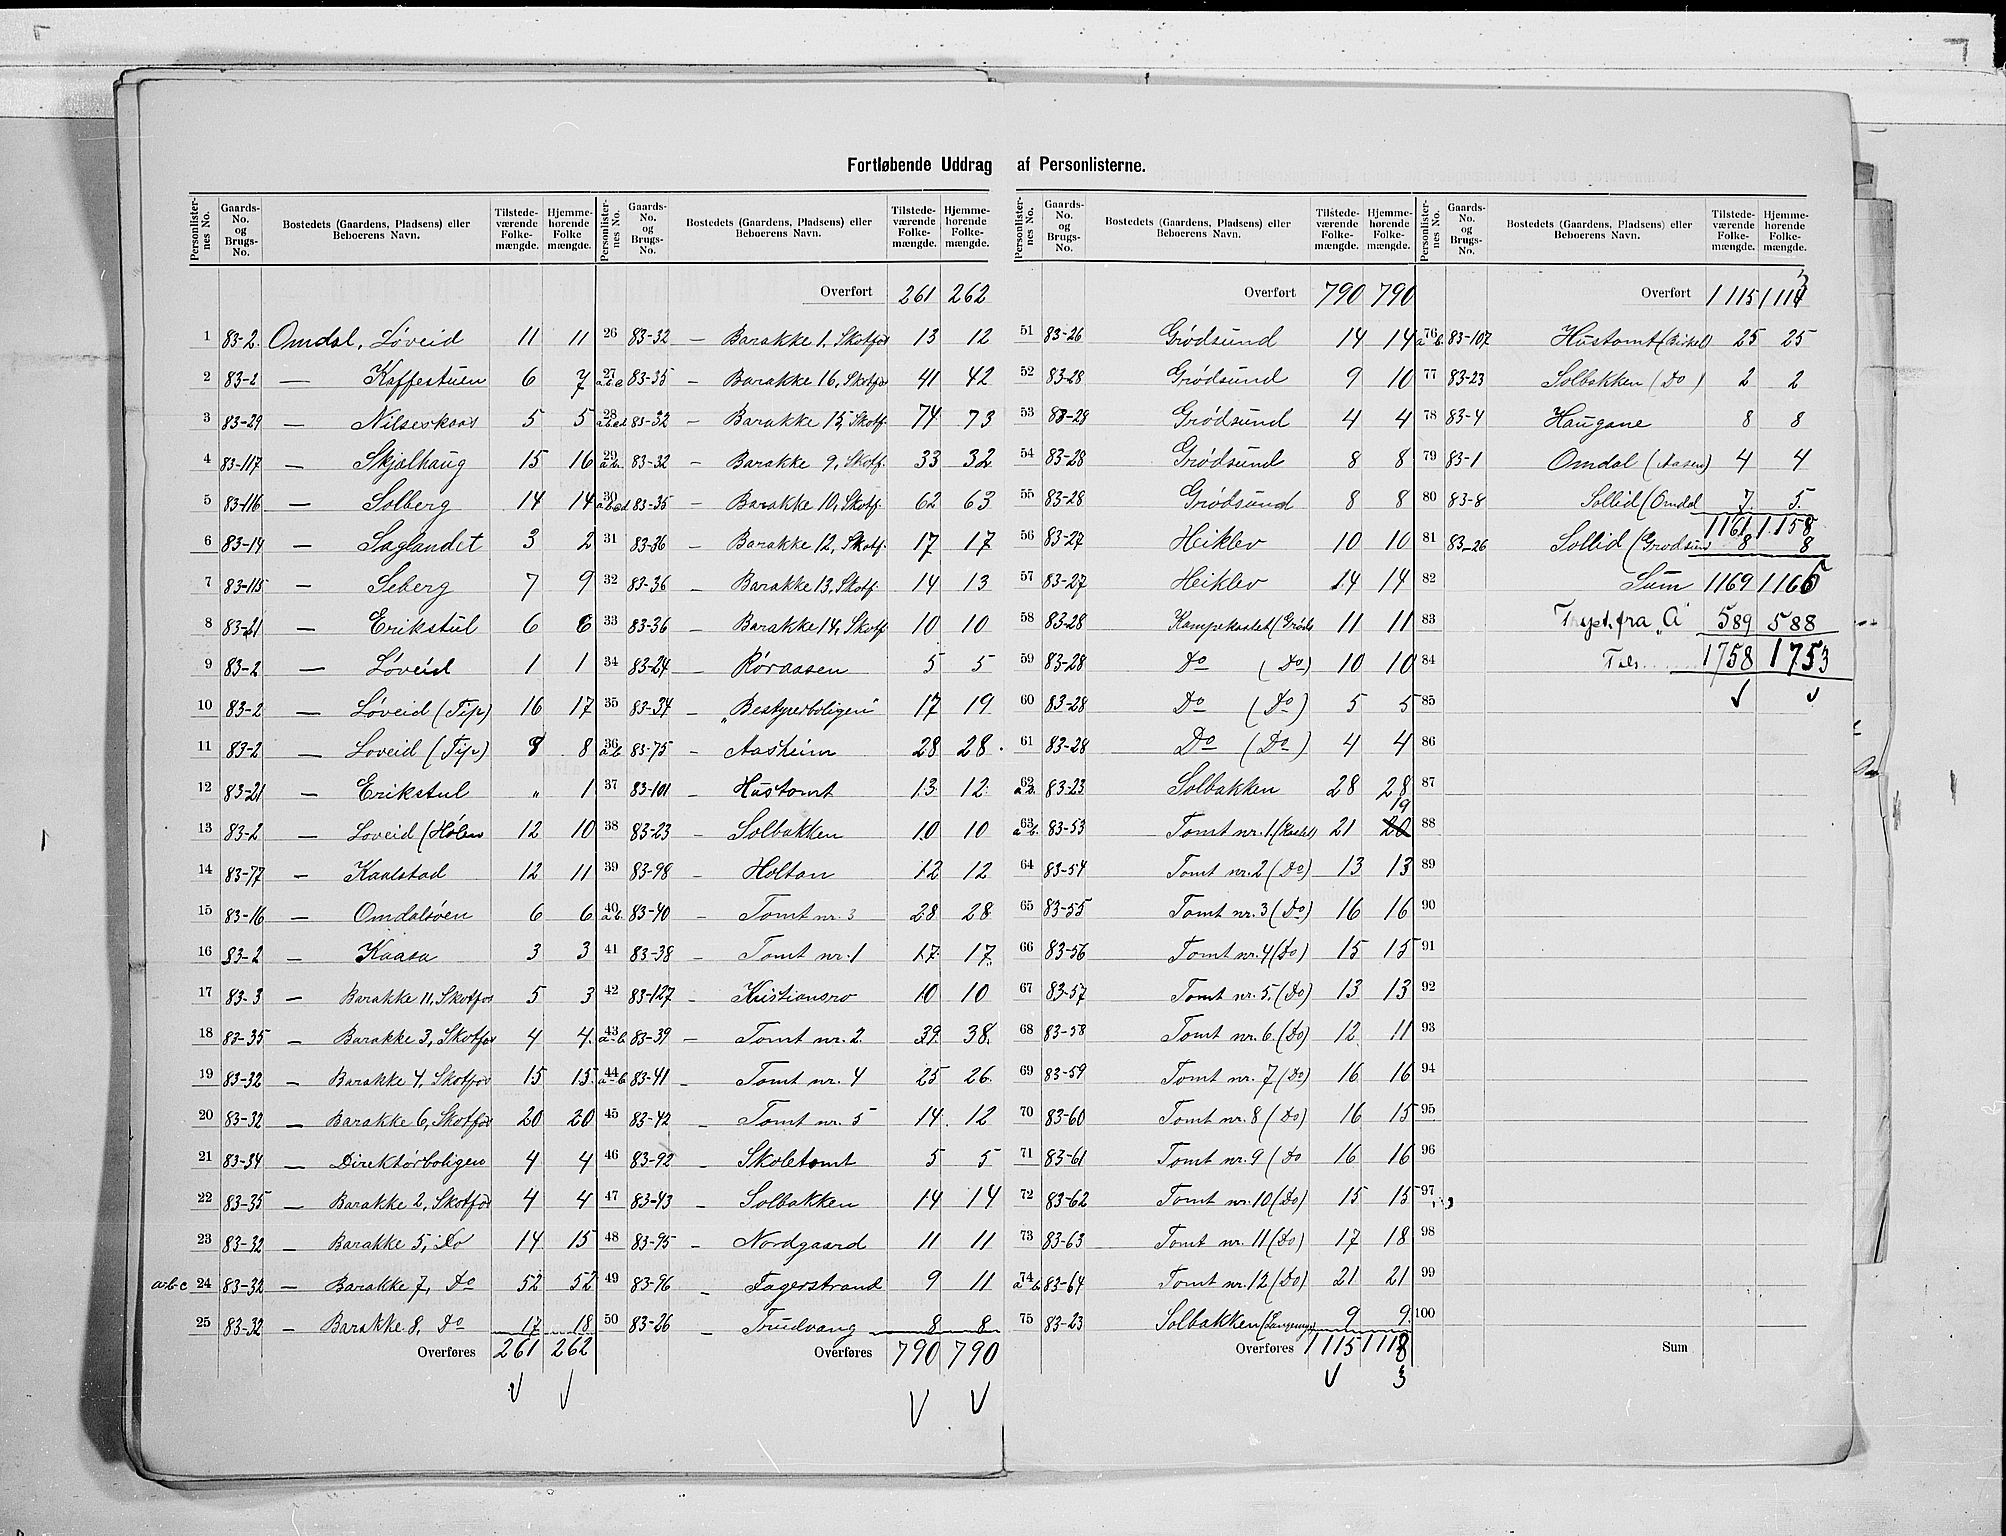 Fortløbende Uddrag af Personlisterne.
Personlister-nes No. Gaards-No. og Brugs-No. Bostedets (Gaardens, Pladsens) eller Beboerens Navn. Tilstede-værende Folke-mængde. Hjemme-hørende Folke mængde.
1 83-2. Omdal, Løveid 11 11
2 83-2 — Kaffestuen 6 7
3 83-29 — Nilseskaas 5 5
4 83-117 — Skjælhaug 15 16
5 83-116 — Solberg 14 14
6 83-14 — Saglandet 3 2
7 83-115 — Seberg 7 9
8 83-21 — Erikstul 6 6
9 83-2 — Løveid 1 1
10 83-2 — Løveid (Tip) 16 17
11 83-2 — Løveid (Tip) 8 8
12 83-21 — Erikstul " 1
13 83-2 — Løveid (Hølen 12 10
14 83-77 — Kaalstad 12 11
15 83-16 — Omdalsøen 6 6
16 83-2 — Kaasa 3 3
17 83-3 — Barakke 11, Skotfos 5 3
18 83-35 — Barakke 3, Skotfos 4 4
19 83-32 — Barakke 4, Skotfos 15 15
20 83-32 — Barakke 6, Skotfos 20 20
21 83-34 — Direktørboligen 4 4
22 83-35 — Barakke 2, Skotfos 4 4
23 83-32 — Barakke 5, Do 14 15
a-b-c 24 83-32 — Barakke 7, Do 52 52
25 83-32 — Barakke 8, Do 17 18
Overføres 261 262
Personlister-nes No. Gaards-No. og Brugs-No. Bostedets (Gaardens, Pladsens) eller Beboerens Navn. Tilstede-værende Folke-mængde. Hjemme-hørende Folke-mængde.
Overført 261 262
26 83-32 — Barakke 1, Skotfos 13 12
27 a.b.c 83-35 — Barakke 16, Skotfos 41 42
28 a.b.c.d 83-32 — Barakke 15, Skotf. 74 73
29 a.b. 83-32 — Barakke 9, Skotf. 33 32
30 a.b.c.d 83-35 — Barakke 10, Skotf. 62 63
31 83-36 — Barakke 12, Skotf. 17 17
32 83-36 — Barakke 13, Skotf. 14 13
33 83-36 — Barakke 14, Skotf 10 10
34 83-24 — Røraasen 5 5
35 83-34 — „Bestyrerboligen" 17 19
36 a.b. 83-75 — Aasheim 28 28
37 83-101 — Hustomt 13 12
38 83-23 — Solbakken 10 10
39 83-98 — Holtan 12 12
40 a.b. 83-40 — Tomt nr. 3 28 28
41 83-38 — Tomt nr. 1 17 17
42 83-127 — Kristiansro 10 10
43 a-b. 83-39 — Tomt nr. 2. 39 38
44 a-b 83-41 — Tomt nr. 4 25 26
45 83-42 — Tomt nr. 5 14 12
46 83-92 — Skoletomt 5 5
47 83-43 — Solbakken 14 14
48 83-95 — Nordgaard 11 11
49 83-96 — Fagerstrand 9 11
50 83-26 — Trudvang 8 8
Overføres 790 790
Personlister-nes No. Gaards-No. og Brugs-No. Bostedets (Gaardens, Pladsens) eller Beboerens Navn. Tilstede-værende Folke-mængde. Hjemme-hørende Folke-mængde.
Overført 790 790
51 83-26 Grødsund 14 14
52 83-28 Grødsund 9 10
53 83-28 Grødsund 4 4
54 83-28 Grødsund 8 8
55 83-28 Grødsund 8 8
56 83-27 Heiklev 10 10
57 83-27 Heiklev 14 14
58 83-28 Kampekastet (Grøds 11 11
59 83-28 Do (Do) 10 10
60 83-28 Do (Do) 5 5
61 83-28 Do (Do) 4 4
62 a.b. 83-23 Solbakken 28 28
63 a-b. 83-53 Tomt nr. 1. 21 20 19
64 83-54 Tomt nr. 2 (Do) 13 13
65 83-55 Tomt nr. 3 (Do) 16 16
66 83-56 Tomt nr. 4 (Do) 15 15
67 83-57 Tomt nr. 5. (Do) 13 13
68 83-58 Tomt nr. 6. (Do) 12 11
69 83-59 Tomt nr. 7 (Do) 16 16
70 83-60 Tomt nr. 8 (Do) 16 15
71 83-61 Tomt nr. 9 (Do 16 16
72 83-62 Tomt nr. 10 (Do) 15 15
73 83-63 Tomt nr. 11 (Do) 17 18
74 a b 83-64 Tomt nr. 12 (Do) 21 21
75 83-23 Solbakken 9 9
Overføres 1115 1118
3
Personlister-nes No. Gaards-No. og Brugs-No. Bostedets (Gaardens, Pladsens) eller Beboerens Navn. Tilstede-værende Folke-mængde. Hjemme-hørende Folke-mængde.
Overført 1115 1114 3
76 a b. 83-107 Hustomt 25 25
77 83-23 Solbakken (Do) 2 2
78 83-4 Haugane 8 8
79 83-1 Omdal (Aasen) 4 4
80 83-8 Sollid (Omdal 7. 5.
1161 1158
81 83-26 Sollid (Grødsund 8 8
82 Sum 1169 1165
83 fra „A" 589 588
84 1758 1753
85
86
87
88
89
90
91
92
93
94
95
96
97
98
99
100
Sum